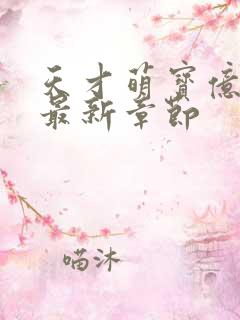 天才萌宝億
最新章節
喵沐